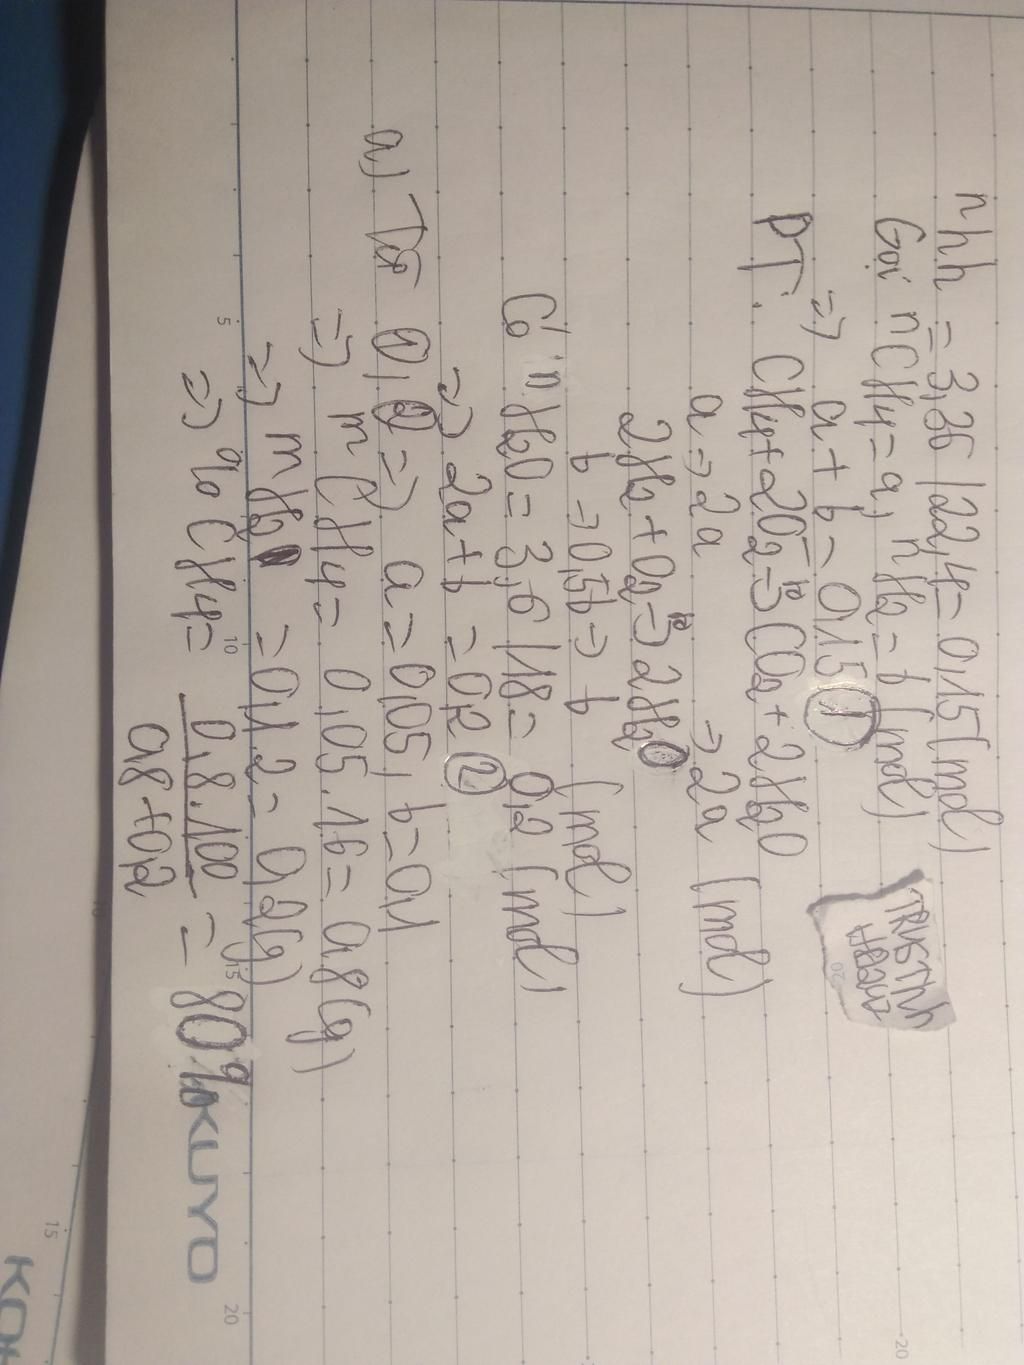 nhh = 3,36 / 22,4 = 0,15 (mol)
Gọi nCH4 = a, nH2 = b (mol)
=> a + b = 0,15 ①
PT: CH4 + 2O2 -t°-> CO2 + 2H2O
a -> 2a -> 2a (mol)
2H2 + O2 -t°-> 2H2O
b -> 0,5b -> b (mol)
Có nH2O = 3,6 / 18 = 0,2 (mol)
=> 2a + b = 0,2 ②
a) Từ 1, 2 => a = 0,05, b = 0,1
=> mCH4 = 0,05.16 = 0,8 (g)
=> mH2 = 0,1.2 = 0,2 (g)
=> % CH4 = 0,8.100 = 80%
0,8 + 0,2
KUYO
5
10
15
20
10
20
15